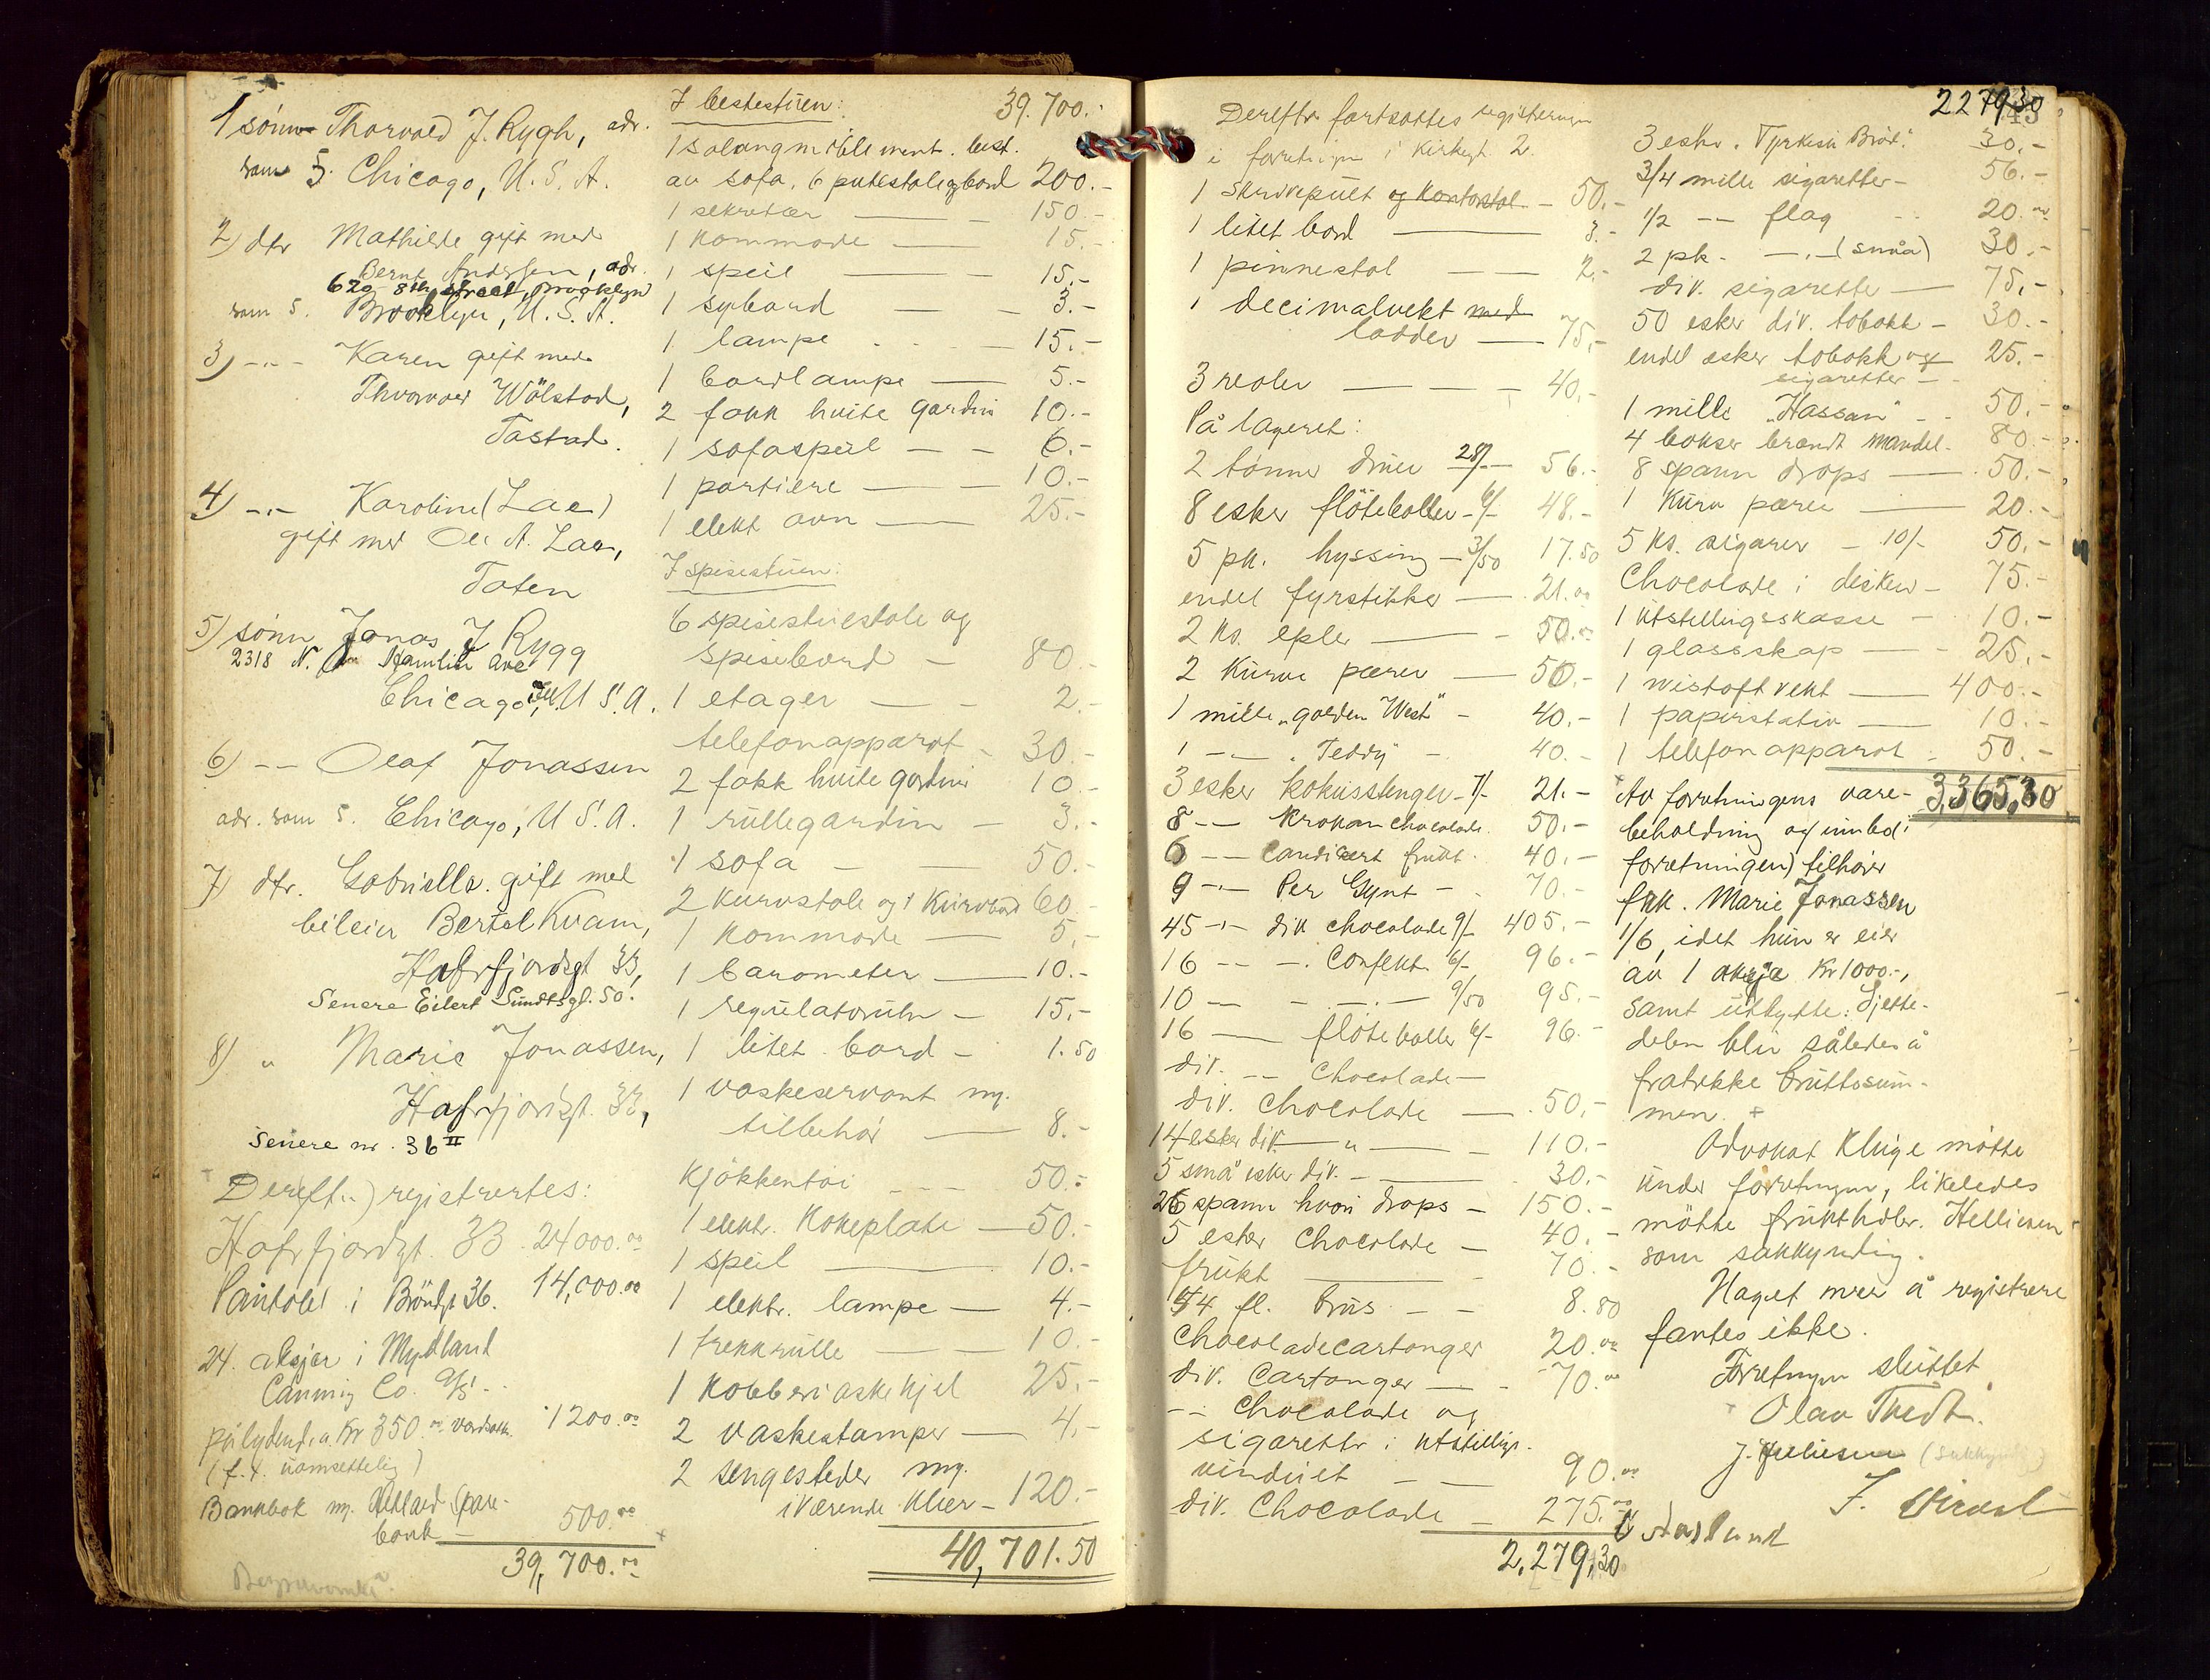 1 sönn Thorvald J. Rygh, adr.
som 5. Chicago, U. S. A.
2) dtr Mathilde gift med
Bernt Andersen, adr.
629 8th street, Brooklyn
som 5. Brooklyn, U. S. A.
3) -"- Karen gift med
Thorvald Wölstad,
Tastad.
4) -"- Karoline (Laa)
gift med Ole A. Laa,
Toten
5) sönn Jonas J Rygg
2318 N. Hamlin Ave
Chicago, Ill. U S. A.
6) -- Olaf Jonassen
adr. som 5. Chicago, U S. A.
7) dtr. Gabriella gift med
bileier Bertel Kvam,
Hafrfjordgt 33,
Senere Eilert Sundtsgt. 50.
8) " Marie Jonassen,
Hafrfjordgt. 33,
Senere nr. 36 II
Dereft..) registrertes:
Hafrfjordgt. 33 . 24000.00
Pantobl i Bröndgt 36. 14,000.00
24. aksjer i Mydland
Canning Co. A/S
pålydende a. Kr 350.00 1200.00
(f. t. uomsettelig)
Bankbok m. Hetland Spare-
bank - 500.00
39,700.00
I bestestuen: 39.700.-
1 salongmöblement best.
av sofa, 6 putestole og bord 200.-
1 sekretær 150.-
1 kommode 15.-
1 speil 15.-
1 sybord 3.-
1 lampe 15.-
1 bordlampe 5.-
2 fakk hvite gardin 10.-
1 sofaspeil 6.-
1 portiere 10.-
1 elekt ovn 25.-
I spisestuen:
6 spisestuestole og
spisebord 80.-
1 etager 2.-
telefonapparat 30.-
2 fakk hvite gardini 10.-
1 rullegardin 3.-
1 sofa 50.-
2 kurvstole og 1 kurvbord 60.-
1 kommode 5.-
1 barometer 10.-
1 regulatoruhr 15.-
1 litet bord 1.50
1 vaskeservant m.
tilbehör 8.-
Kjökkentöi 50.-
1 elektr. kokeplate 50.-
1 speil 10.-
1 elektr. lampe 4.-
1 trekkrulle 10.-
1 kobbervaskekjel 25.-
2 vaskestamper 4.-
2 sengesteder m.
iværende klær - 120.-
40,701.50
Derefter fortsattes registreringen
i forretningen i Kirkegt 2.
1 skrivepult og kontorstol - 50.-
1 litet bord 3.-
1 pinnestol 2.-
1 decimalvekt med
lodder 75.-
3 reoler 40.-
På lageret:
2 tönner druer 28/- 56.-
8 esker flöteboller - 6/- 48.-
5 pk. hyssing - 3/50 17.50
endel fyrstikker 21.00
2 ks. epler 50.00
2 kurve pærer 50.-
1 mille "golden West" - 40.-
1 -"- "Teddy" - 40.-
3 esker kokusstenger - 7/- 21.-
8 -- Krokan chocolade 50.-
6 -- Candisert frukt. 40.-
9 -"- Per Gynt - 70.-
45 -"- div chocolade 9/- 405.-
16 -- -. Confekt 6/- 96.-
10 -- -.- 9/50 95.-
16 -- flöteboller 6/- 96.-
div. -- Chocolade -
div. Chocolade 50.-
14 esker div. " 110.-
5 små esker div. 30.-
26 spann hvori drops - 150.-
5 esker Chocolade - 40.-
frukt 70.-
44 fl. brus 8.80
Chocoladecartonger 20.00
div. Cartonger 70.00
-- Chocolade og
sigaretter i utstillings-
vinduet 90.00
div. Chocolade 275.00
2,279,30
2279.30
3 esker Tyrkisk Bröd. 30.-
3/4 mille sigaretter - 56.-
1/2 -- flag 20.00
2 pk. -.- (små) 30.-
div. sigaretter 75.-
50 esker div. tobakk - 30.-
endel esker tobakk og 25.-
sigaretter -
1 mille "Hassan" 50.-
4 bokser brændt mandel. 80.-
8 spann drops 50.-
1 kurv pærer 20.-
5 ks. sigarer - 10/- 50.-
Chocolade i disken - 75.-
1 utstillingskasse - 10.-
1 glasskap 25.-
1 wistoft vekt 400.-
1 papirstativ 10.-
1 telefonapparat 50.-
3,365,30
Av forretningens vare-
beholdning og innbo i
forretningen) tilhører
frk. Marie Jonassen
1/6, idet hun er eier
av 1 aksje Kr 1000.-,
samt utbytte: Sjette-
delen blir således å
fratrekke bruttosum-
men. +
Advokat Kluge mötte
under forretningen, likeledes
mötte frukthdlr. Helliesen
som sakkyndig.
Noget mer å registrere
fantes ikke.
Forretningen sluttet
Olav Thedt.
J. Helliesen (sakkyndig)